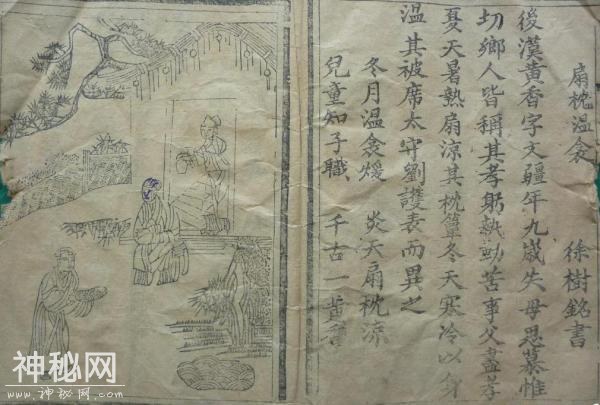 扇枕溫衾
徐樹銘書
後漢黃香字文疆年九歲失母思慕惟
切鄉人皆稱其孝躬執勤苦事父盡孝
夏天暑熱扇涼其枕簟冬天寒冷以身
溫其被席太守劉護表而異之
冬月溫衾煖 炎天扇枕涼
兒童知子職 千古一黃香
神秘网
www.神秘网.com